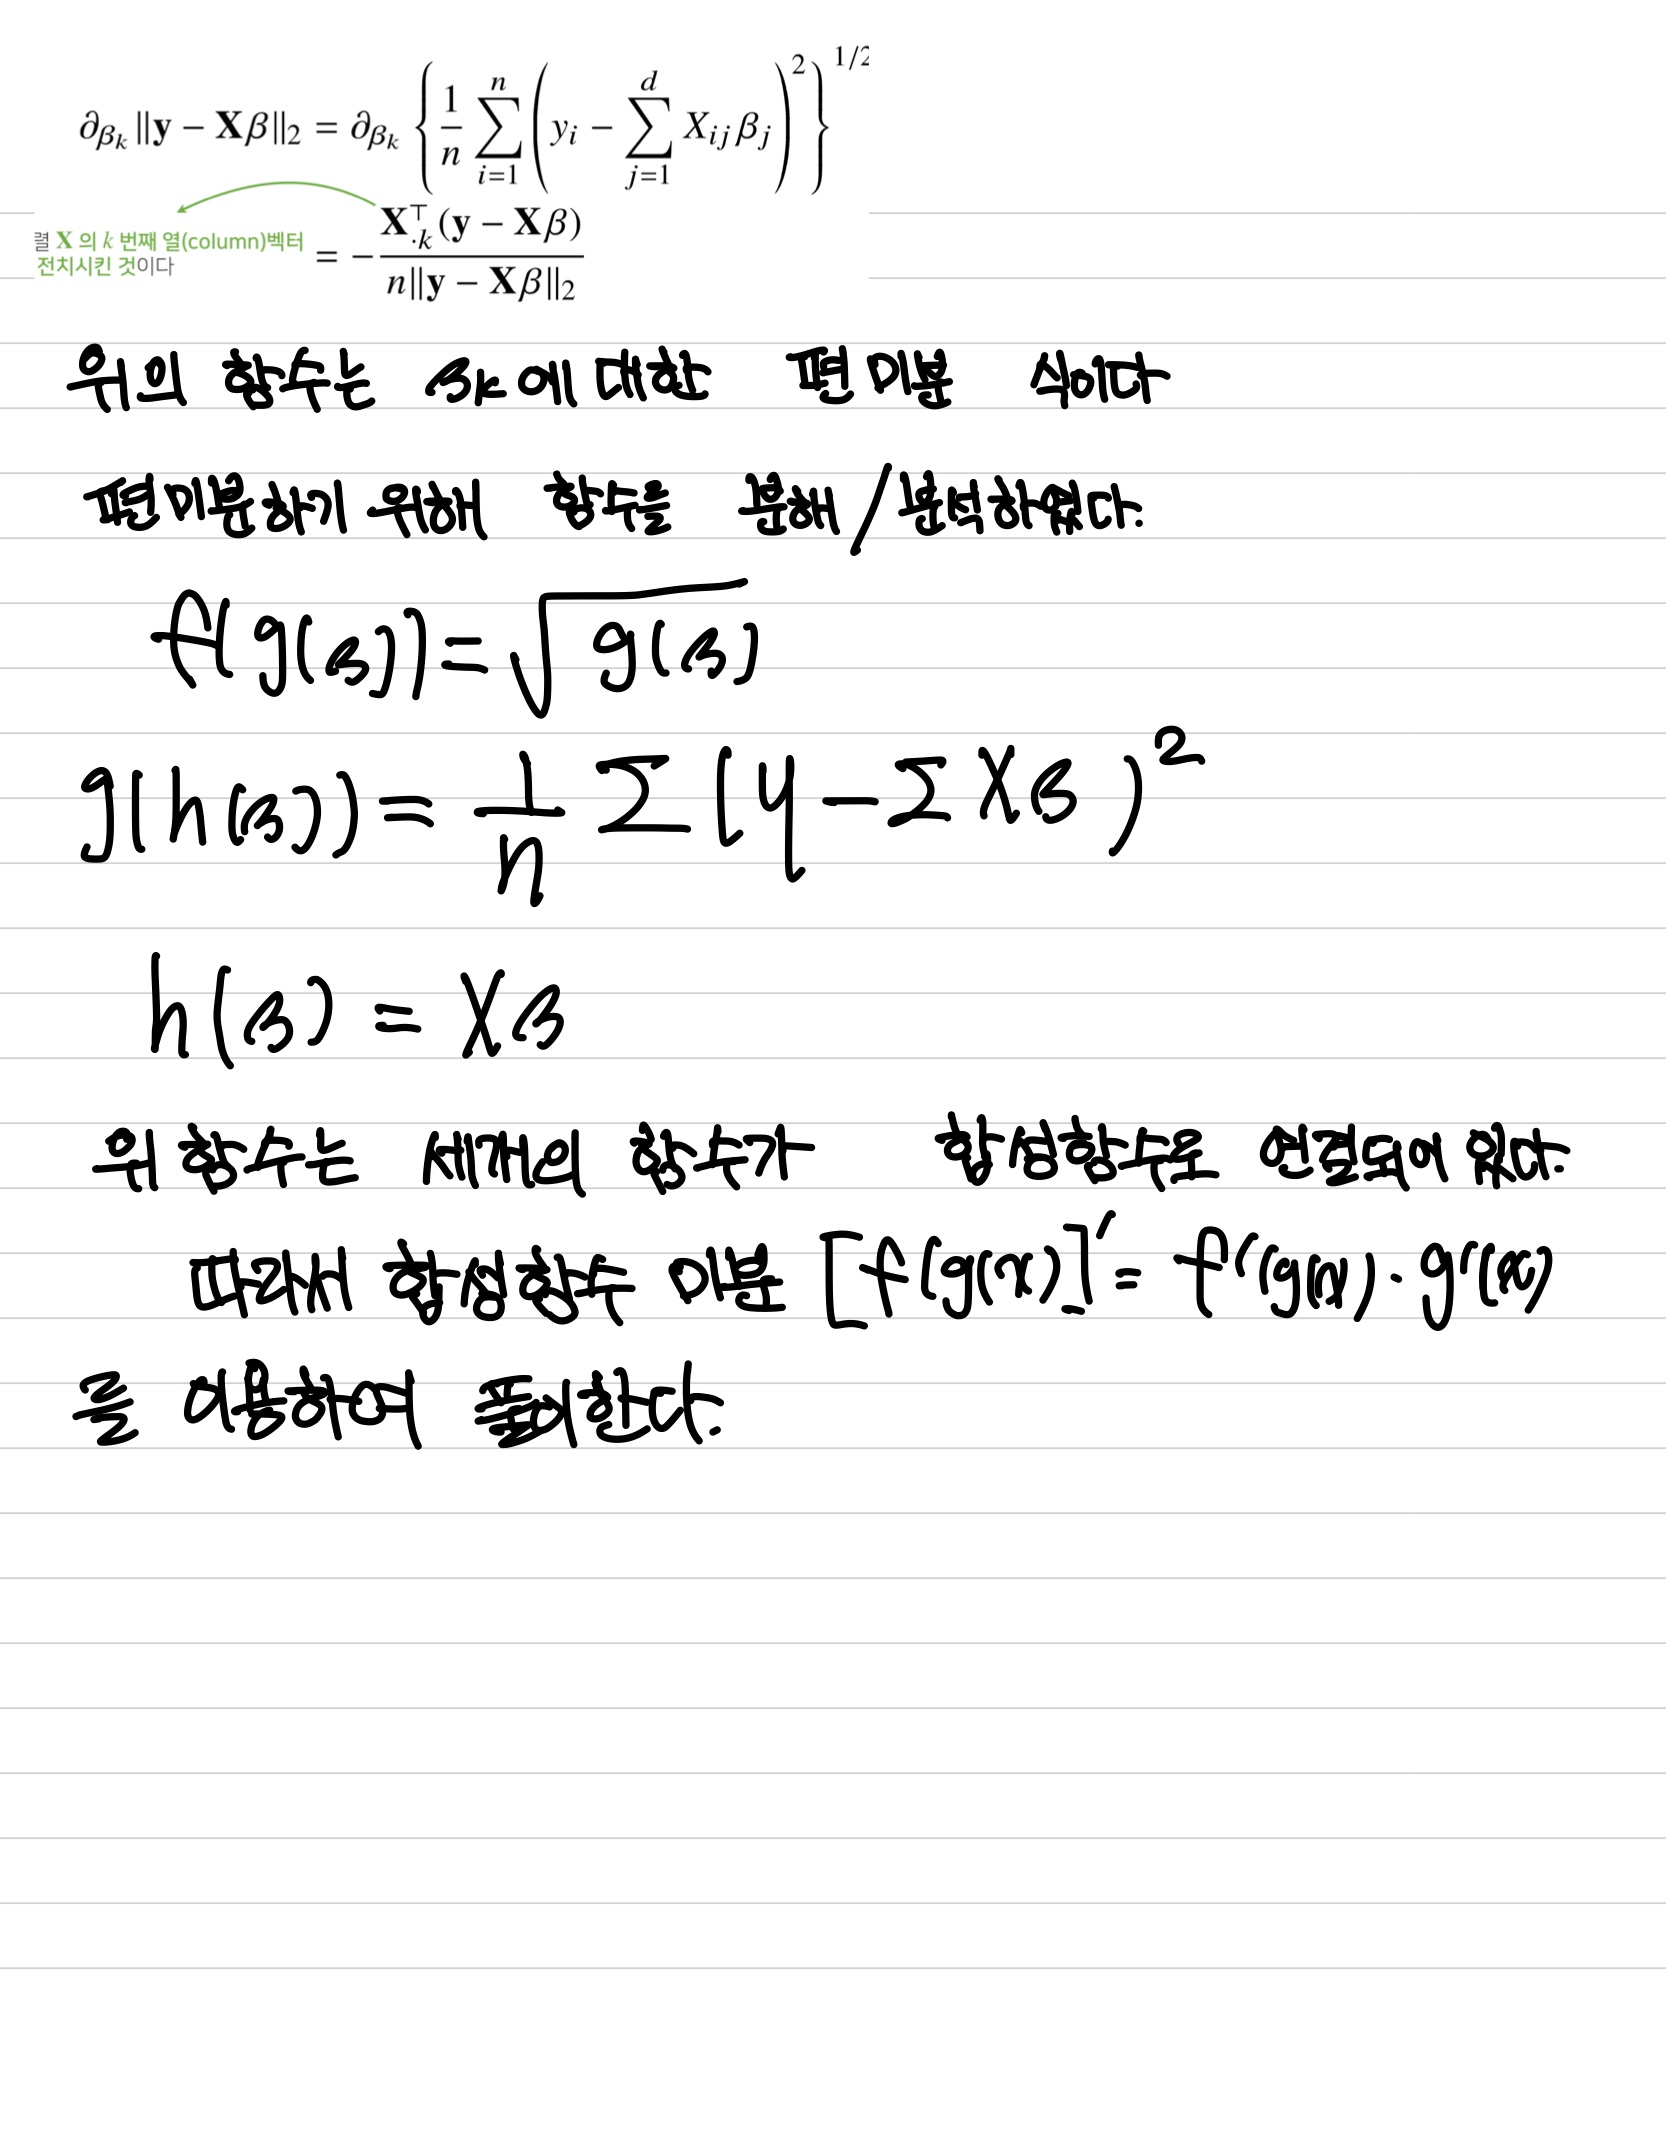 ∂βₖ ‖y − Xβ‖₂ = ∂βₖ { 1/n ∑ᵢ₌₁ⁿ ( yᵢ − ∑ⱼ₌₁ᵈ Xᵢⱼβⱼ )² }^1/2
= − X⊤·k (y − Xβ) / n‖y − Xβ‖₂
렬 X 의 k 번째 열(column)벡터
전치시킨 것이다
위의 함수는 βk에 대한 편미분 식이다
편미분하기 위해 함수를 분해/분석하였다.
f(g(β)) = √g(β)
g(h(β)) = 1/n Σ (y − Σ Xβ)²
h(β) = Xβ
위 함수는 세개의 함수가 합성함수로 연결되어 있다.
따라서 합성함수 미분 [f(g(x)]′ = f′(g(x)·g′(x)
를 이용하여 풀이한다.